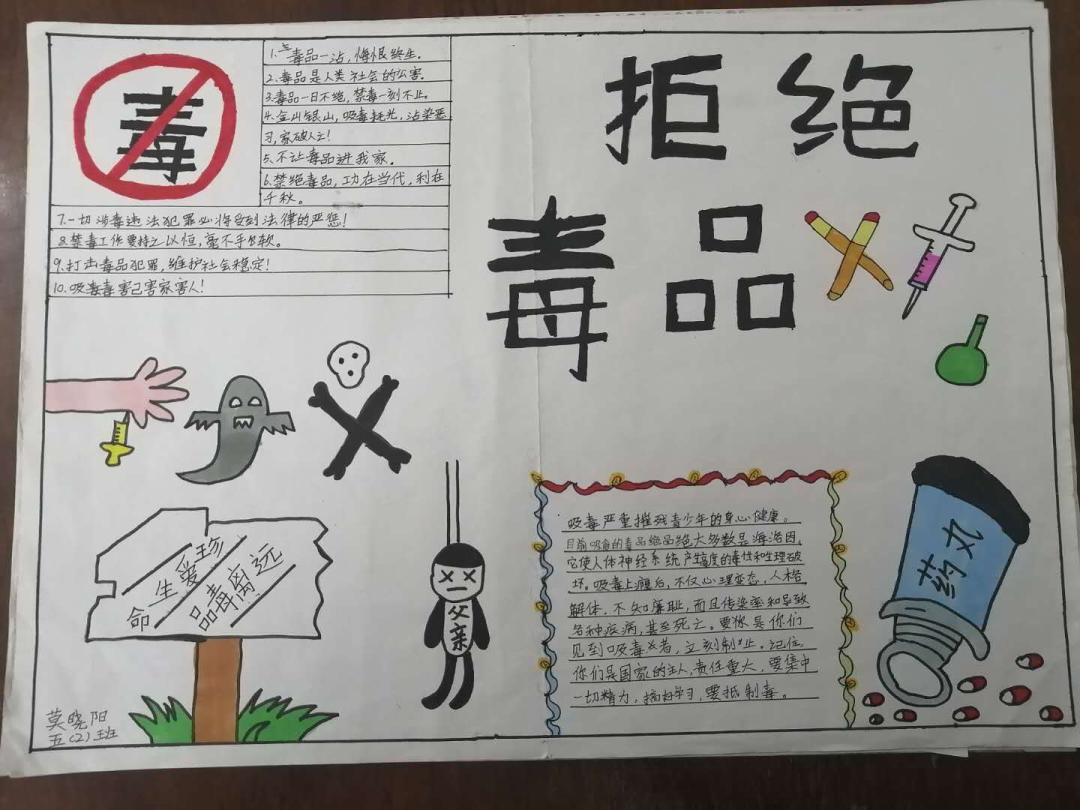 毒
1. 毒品一沾，悔恨终生.
2. 毒品是人类社会的公害.
3. 毒品一日不绝，禁毒一刻不止。
4. 金山银山，吸毒耗光，沾染恶
习，家破人亡！
5. 不让毒品进我家.
6. 禁绝毒品，功在当代，利在
千秋。
7. 一切涉毒违法犯罪必将受到法律的严惩！
8. 禁毒工作要持之以恒，毫不手软。
9. 打击毒品犯罪，维护社会稳定！
10. 吸毒毒害己害家害人！
拒绝
毒品
珍爱生命
远离毒品
父亲
吸毒严重摧残青少年的身心健康。
目前吸食的毒品绝大多数是海洛因，
它使人体神经系统产生高度的毒性和生理破
坏。吸毒上瘾后，不仅心理变态，人格
解体，不知廉耻，而且传染率和导致
各种疾病，甚至死亡。要你是你们
见到吸毒者，立刻制止。记住，
你们是国家的主人，责任重大，要集中
一切精力，搞好学习，要抵制毒。
药丸
莫晓阳
五（2）班